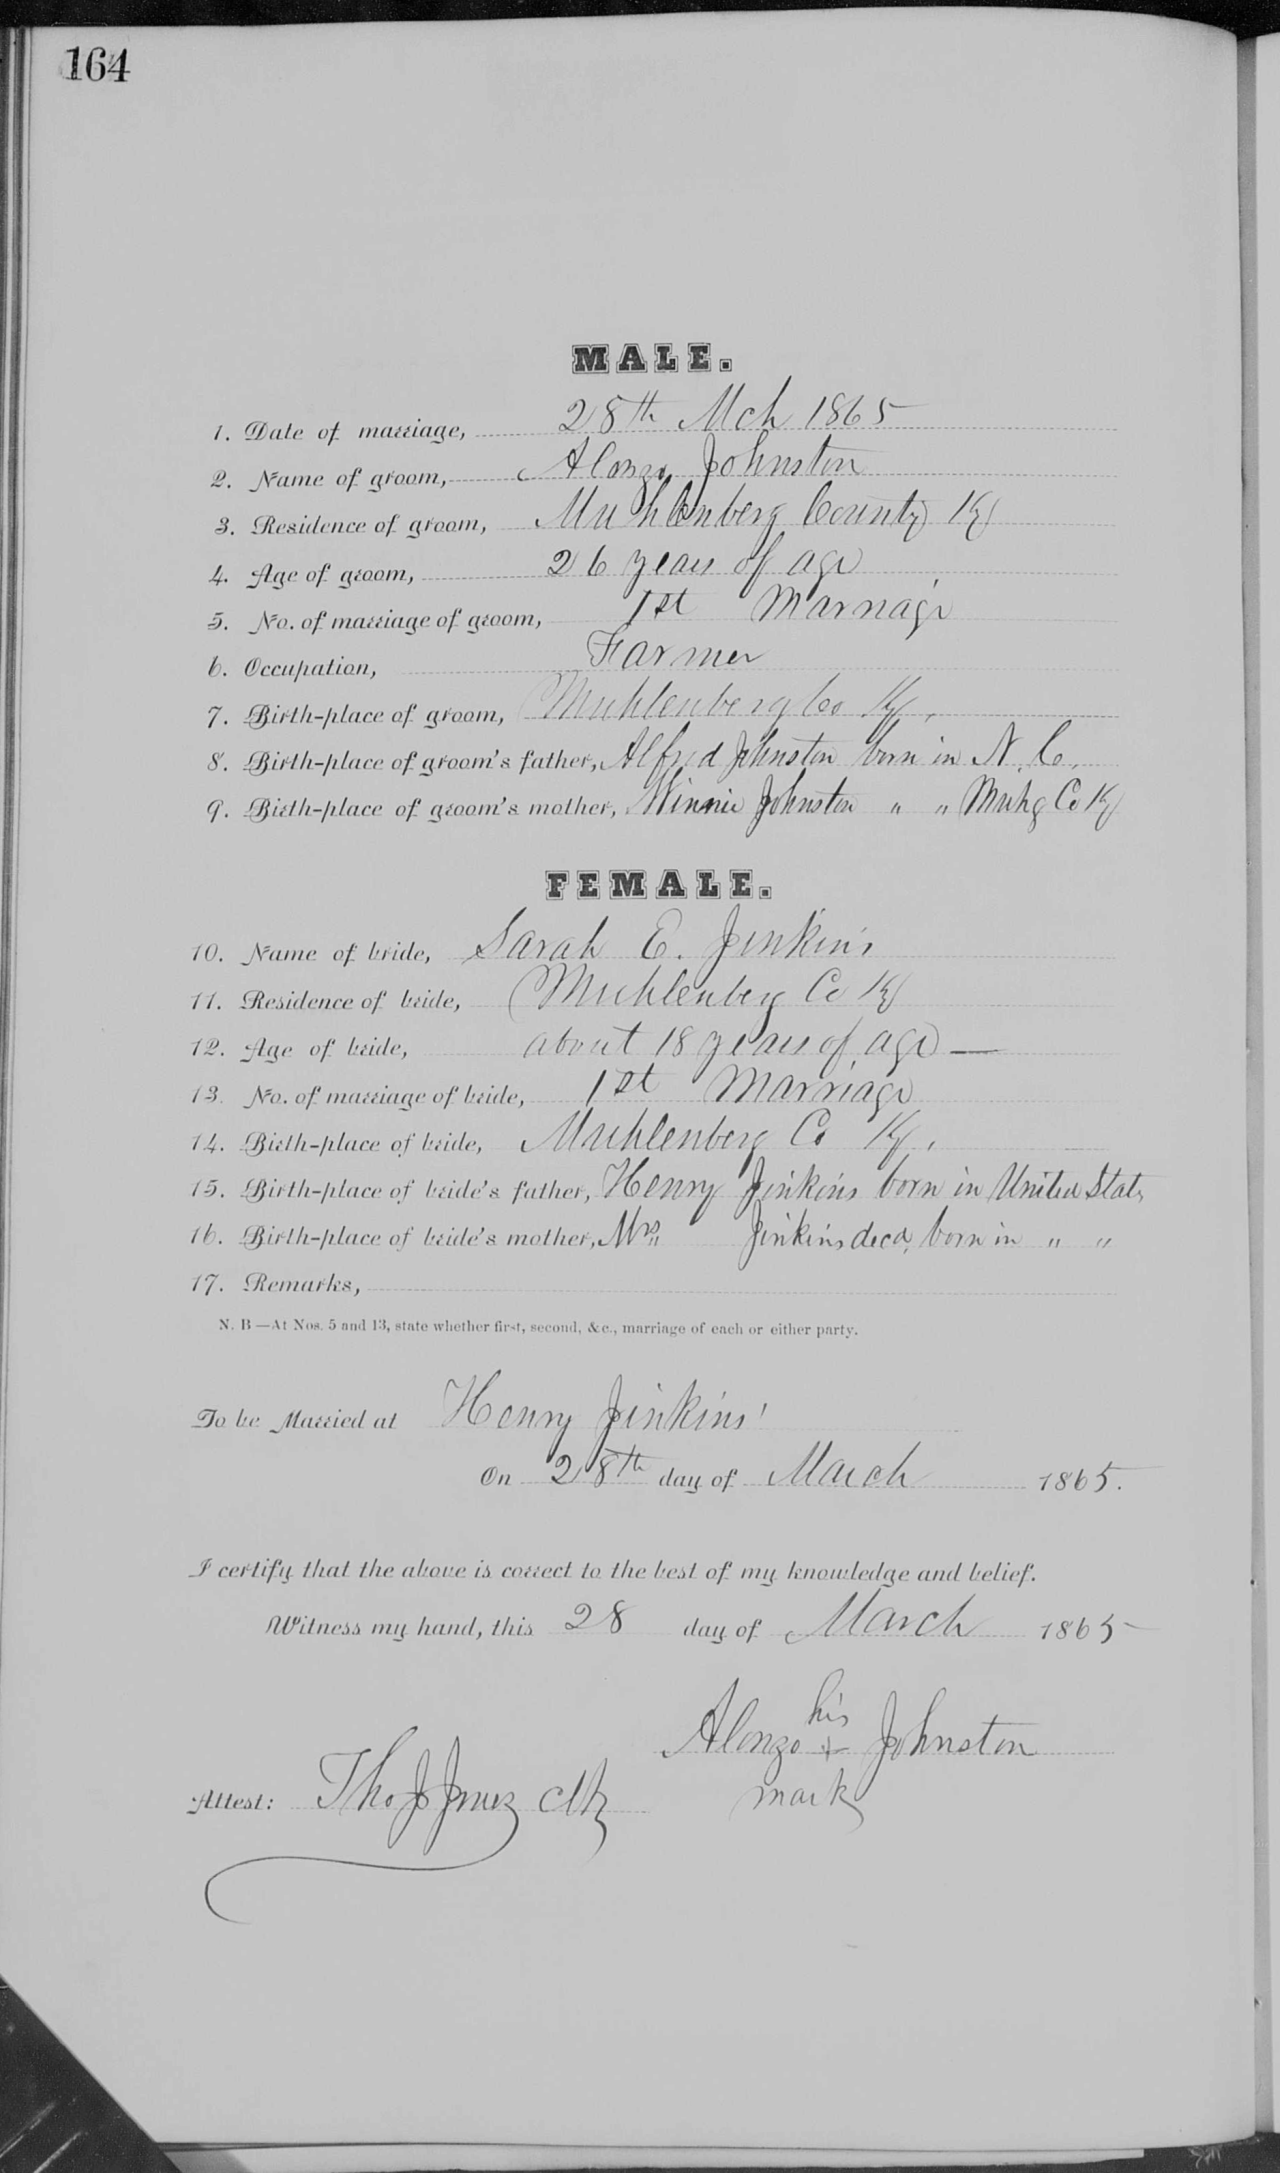 164
MALE.
1. Date of marriage, 28th Mch 1865
2. Name of groom, Alonzo Johnston
3. Residence of groom, Muhlenberg County Ky
4. Age of groom, 26 years of age
5. No. of marriage of groom, 1st Marriage
6. Occupation, Farmer
7. Birth-place of groom, Muhlenberg Co Ky.
8. Birth-place of groom's father, Alfred Johnston born in N. C.
9. Birth-place of groom's mother, Winnie Johnston " " Muhg Co Ky
FEMALE.
10. Name of bride, Sarah E. Jinkins
11. Residence of bride, Muhlenberg Co Ky
12. Age of bride, about 18 years of age —
13. No. of marriage of bride, 1st Marriage
14. Birth-place of bride, Muhlenberg Co Ky.
15. Birth-place of bride's father, Henry Jinkins born in United States
16. Birth-place of bride's mother, Mrs Jinkins decd, born in " "
17. Remarks,
N. B—At Nos. 5 and 13, state whether first, second, &c., marriage of each or either party.
To be Married at Henry Jinkins'
On 28th day of March 1865.
I certify that the above is correct to the best of my knowledge and belief.
Witness my hand, this 28 day of March 1865
his
Alonzo + Johnston
mark
Attest: Tho J Jones Clk